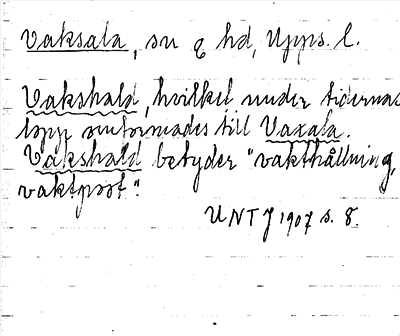 Vaksala, sn o hd, Upps. l.
Vakshald, hvilket under tidernas
lopp omformades till Vaxala.
Vakshald betyder "vakthållning,
vaktpost".
UNT J 1907 s. 8.